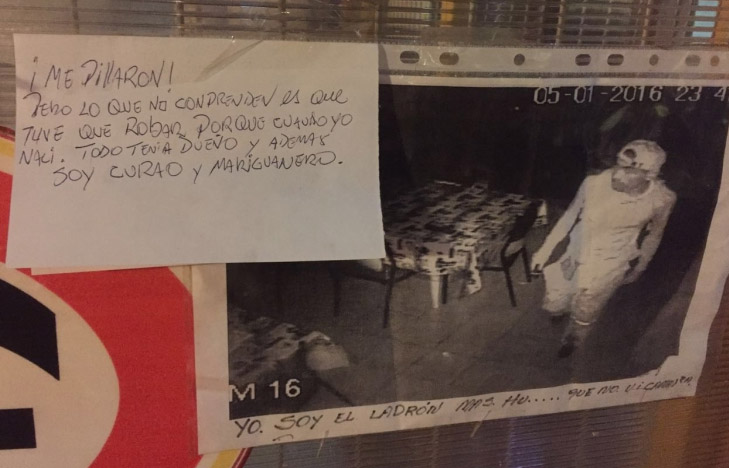 ¡ME PillARON!
PERO LO QUE NO CONPRENDEN ES QUE
TUVE QUE ROBAR PORQUE CUANDO YO
NACI. TODO TENIA DUEÑO Y ADEMAS
SOY CURAO Y MARIGUANERO.
05-01-2016 23 4
M 16
YO. SOY EL LADRÓN MAS HU..... QUE NO